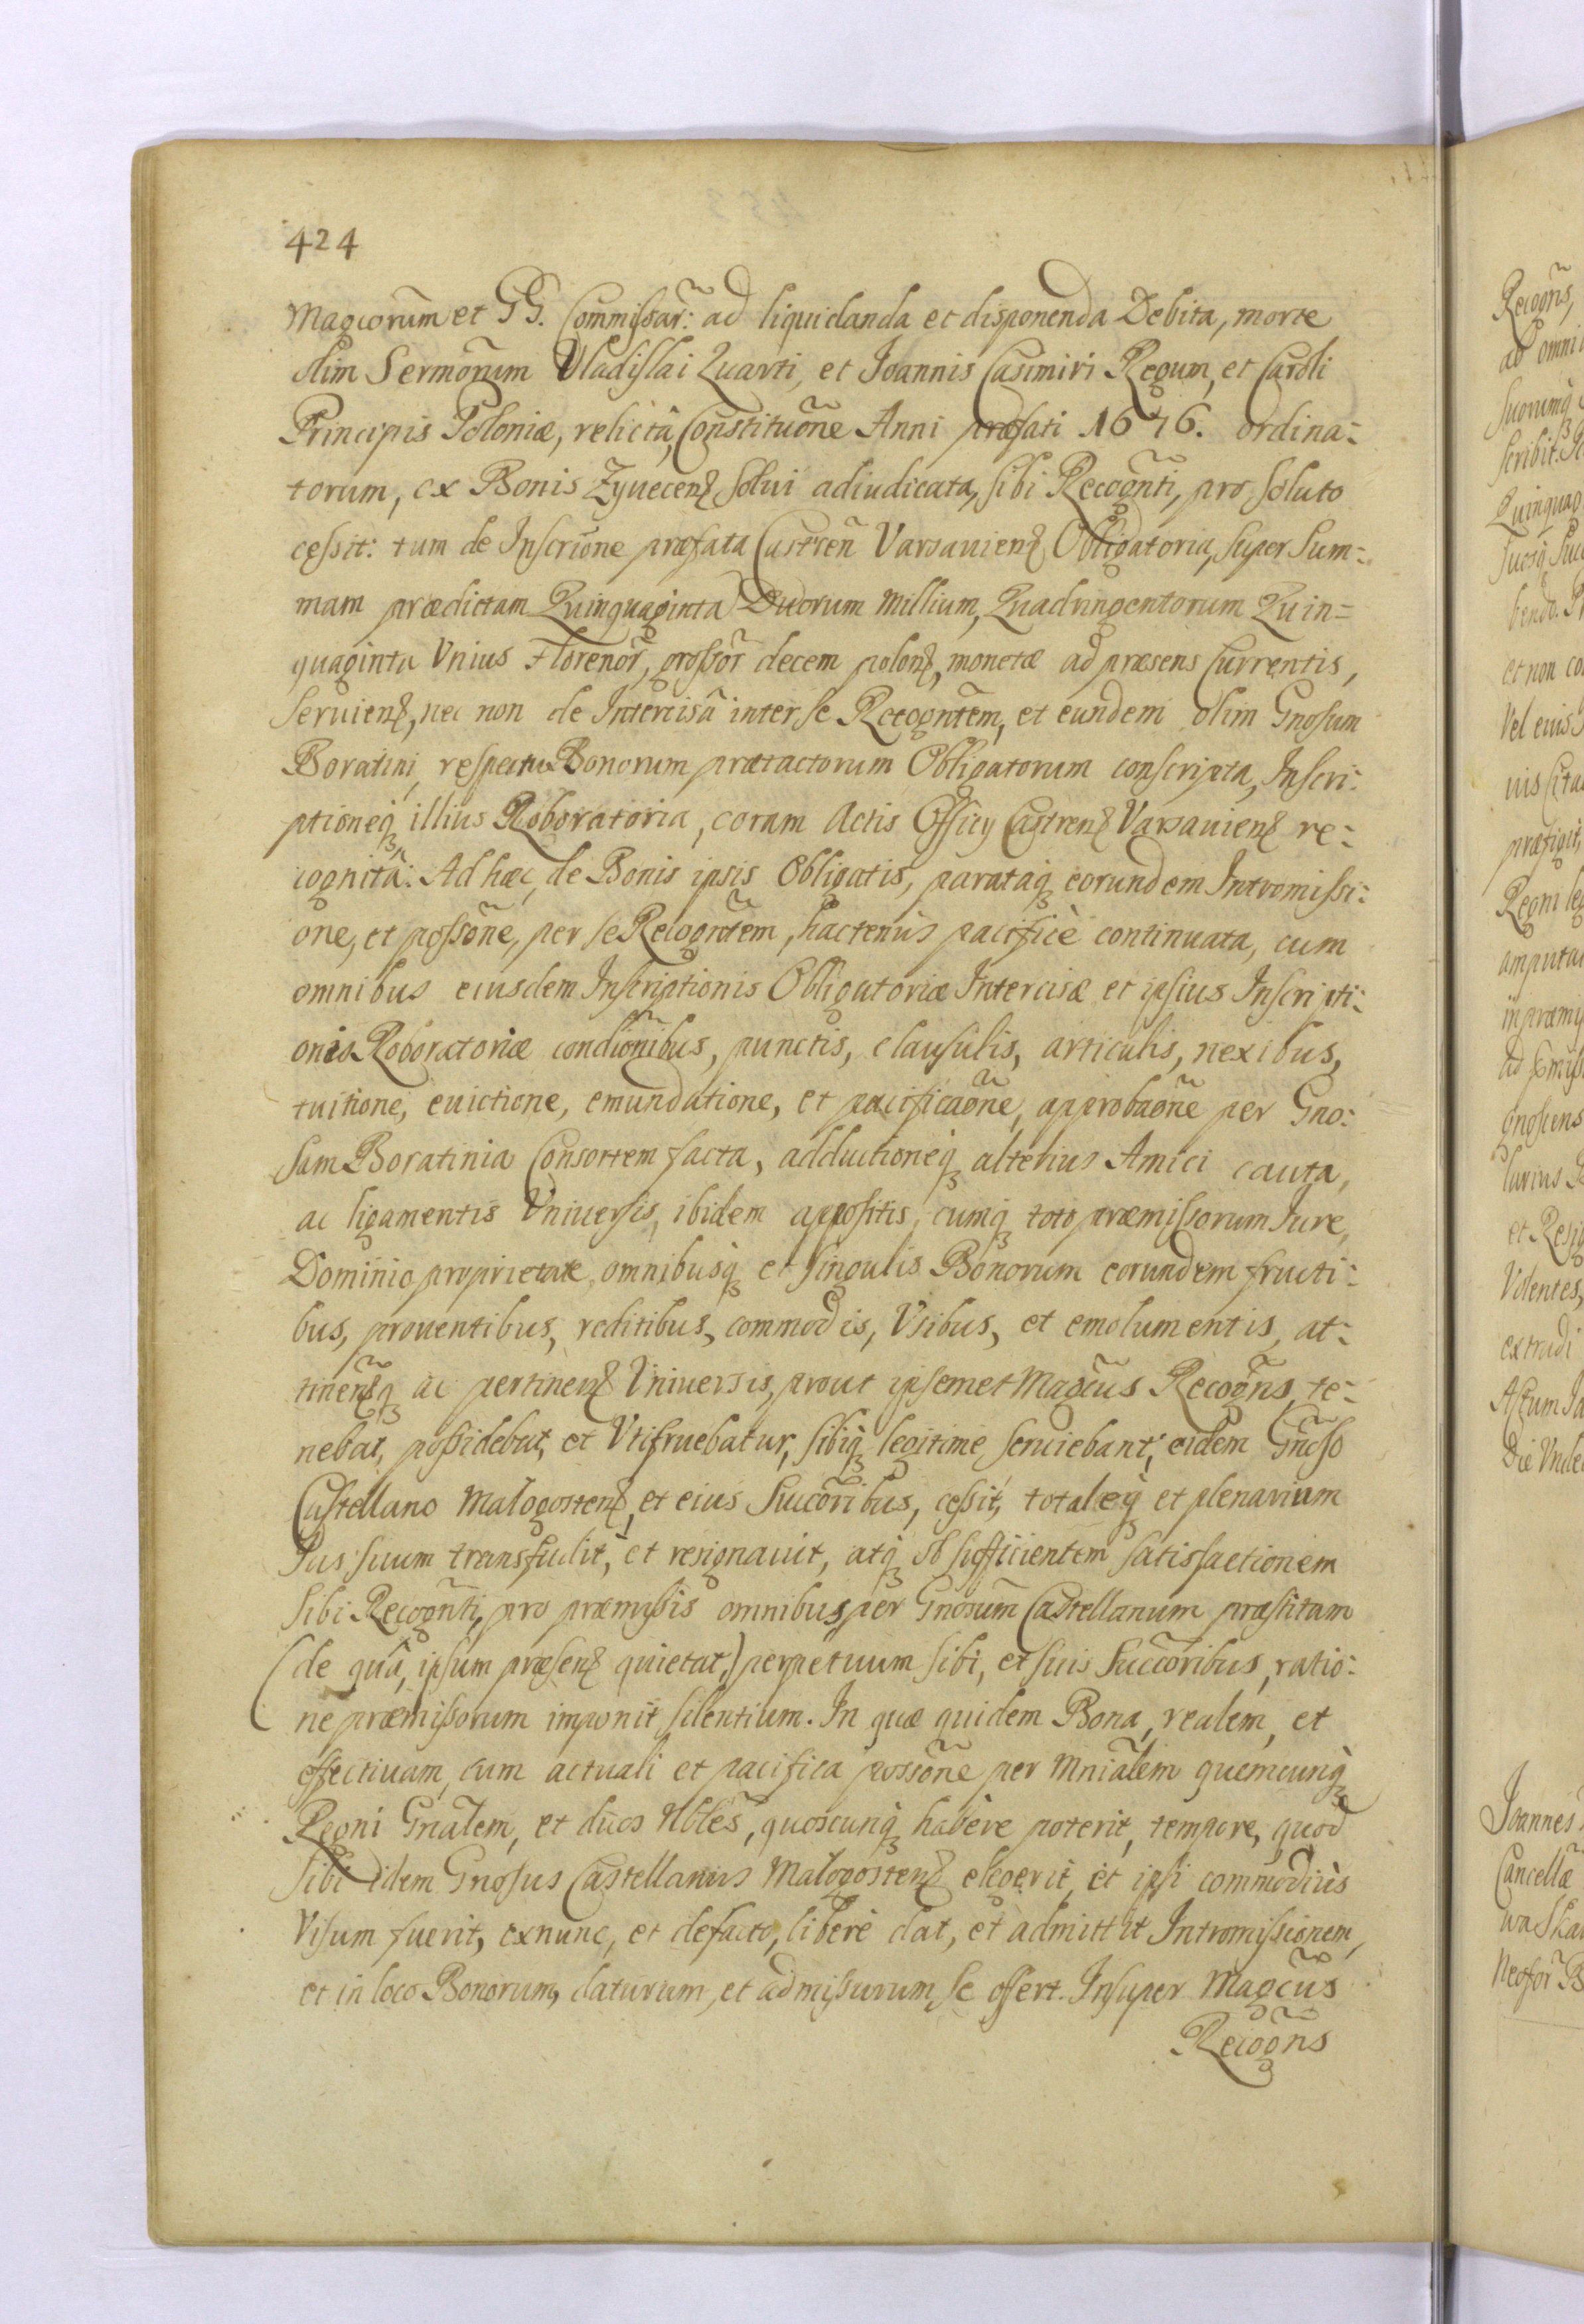 424
Magcorum̃ et GG. Commissar̃: ad liquidanda et disponenda Debita, morte
olim Sermorũm Vladislai Quarti, et Joannis Casimiri Regum, et Caroli
Principis Poloniæ, relicta, Constituõne Anni præfati 1676. ordina=
torum, ex Bonis Zyvecenꝭ solui adiudicata, sibi Recogñti, pro soluto
cessit: tum de Inscrĩone præfata Castreñ Varsavienꝭ Obligatoria, super Sum=
mam prædictam Quinquaginta Duorum Millium, Quadringentorum Quin=
quaginta Vnius Florenor̃, grossor̃ decem polonꝭ, monetæ ad præsens Currentis,
Servienꝭ, nec non de Intercisâ inter se Recogñtem, et eundem olim Gnosum
Boratini, respectu Bonorum prætactorum Obligatorum conscripta, Inscri=
ptioneqꝫ illius Roboratoria, coram Actis Officÿ Castrenꝭ Varsavienꝭ re=
cognitâ: Ad hæc, de Bonis ipsis Obligatis, parataqꝫ eorundem Intromissi=
one, et possõne, per se Recogñtem, hactenùs pacificè continuata, cum
omnibus eiusdem Inscriptionis Obligatoriæ Intercisæ et ipsius Inscripti=
onis Roboratoriæ condĩonibus, punctis, clausulis, articulis, nexibus,
tuitione, evictione, emundatione, et pacificaõne, approbaõne per Gno=
sam Boratinia Consortem facta, adductioneqꝫ alterius Amici cauta,
ac ligamentis Vniversis, ibidem appositis, cumqꝫ toto præmissorum Iure,
Dominio proprietate, omnibusqꝫ et singulis Bonorum eorundem fructi=
bus, proventibus, reditibus, commodis, Vsibus, et emolumentis, at=
tineñꝭqꝫ ac pertinenꝭ Vniversis, prout ipsemet Magcus̃ Recogñs, te=
nebat, possidebat, et Vtifruebatur, sibiqꝫ legitime serviebant; eidem Gnoso
Castellano Malogostenꝭ, et eius Succõribus, cessit, totaleqꝫ et plenarium
Jus suum transfudit, et resignavit, atqꝫ ob sufficientem satisfactionem
sibi Recogñti, pro præmissis omnibus, per Gnosum̃ Castellanum præstitam
(de quâ, ipsum præsenꝭ quietat,) perpetuum sibi, et suis Succõribus, ratio=
ne præmissorum imponit silentium. In quæ quidem Bona, realem, et
effectivam, cum actuali et pacifica possõne per Mniãlem quemcunqꝫ
Regni Gnãlem, et duos Nbles̃, quoscunqꝫ habere poterit, tempore, quod
sibi idem Gnosus Castellanus Malogostenꝭ elegerit, et ipsi commodiùs
Visum fuerit, exnunc, et defacto, liberè dat, et admittit Intromissionem,
et in loco Bonorum, daturum, et admissurum se offert. Insuper Magcus̃
Recogñs